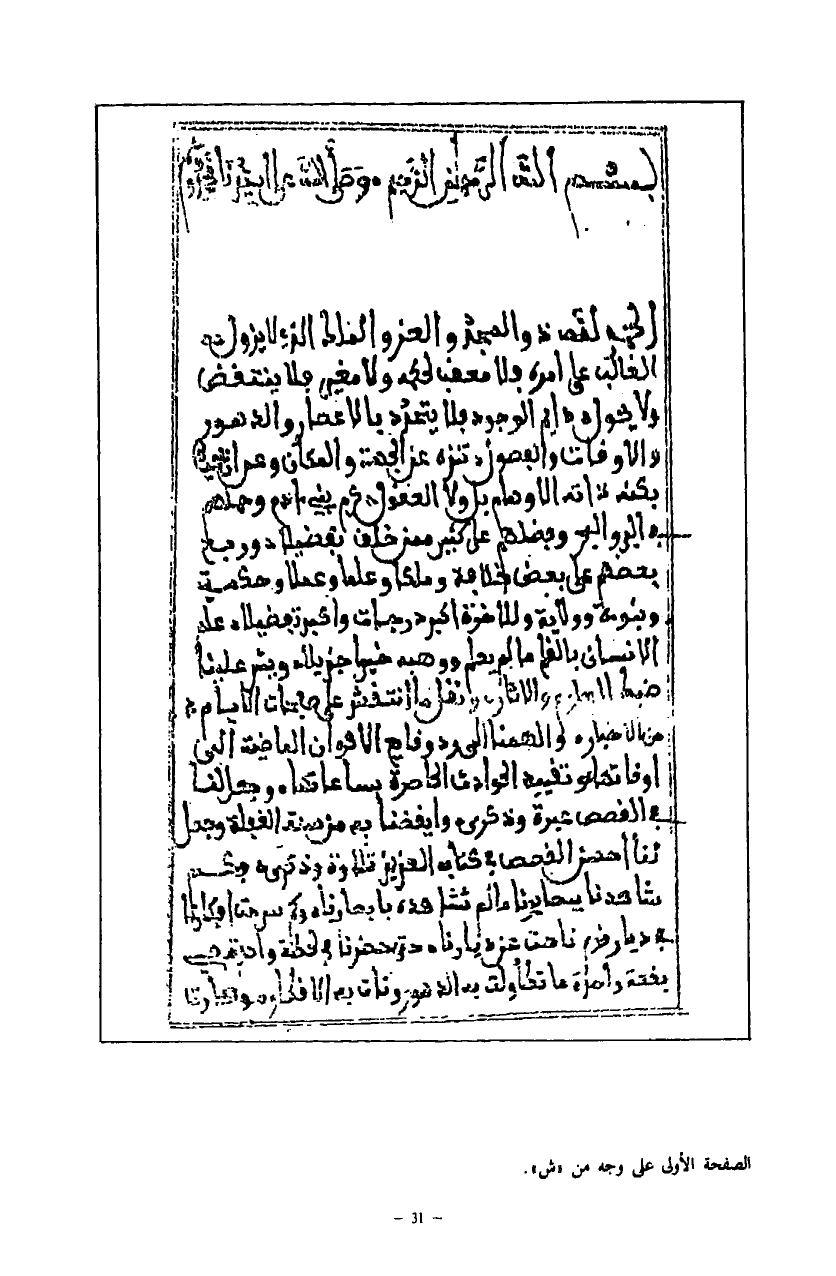 بسم الله الرحمن الرحيم وصلى الله على
والعز والملك الذي لا يزول
الغالب على أمره فلا معقب لحكمه ولا مغير فلا ينتقض
ولا يحول دائم الوجود فلا يتحدد بالاعصار والدهور
والاوقات والفصول تنزه عن الجهة والمكان وعن
بكنه ذاته الاوهام بل ولا العقول كرم بني ءادم وحملهم
في البر والبحر وفضلهم على كثير ممن خلق تفضيلا ورفع
بعضهم على بعض خلافة وملكا وعلما وعملا وحكمة
ونبوءة وولاية وللاخرة اكبر درجات واكبر تفضيلا علم
الانسان بالقلم ما لم يعلم ووهبه خيرا جزيلا ويسر علينا
ضبط والاثار ونقل ما انتقش على الايام
من الاخبار والهمنا الى رد وقايع الاقران الماضية الى
اوقاتها وتقييد الحوادث الحاضرة بساعاتها وجعل لنا
في القصص عبرة وذكرى وايقضنا به من سنة الغفلة وجعل
لنا احسن القصص في كتابه العزيز تلاوة وذكرى
شاهدنا ببصايرنا ما لم نشاهده بابصارنا وكم سرحت افكارنا
في ديار قوم ناحت عن ديارنا حتى حضرنا في لحظة واحدة
دفعة واحدة ما تطاولت به الدهور ونات به الافكار
الصفحة الأولى على وجه من «ش».
– 31 –